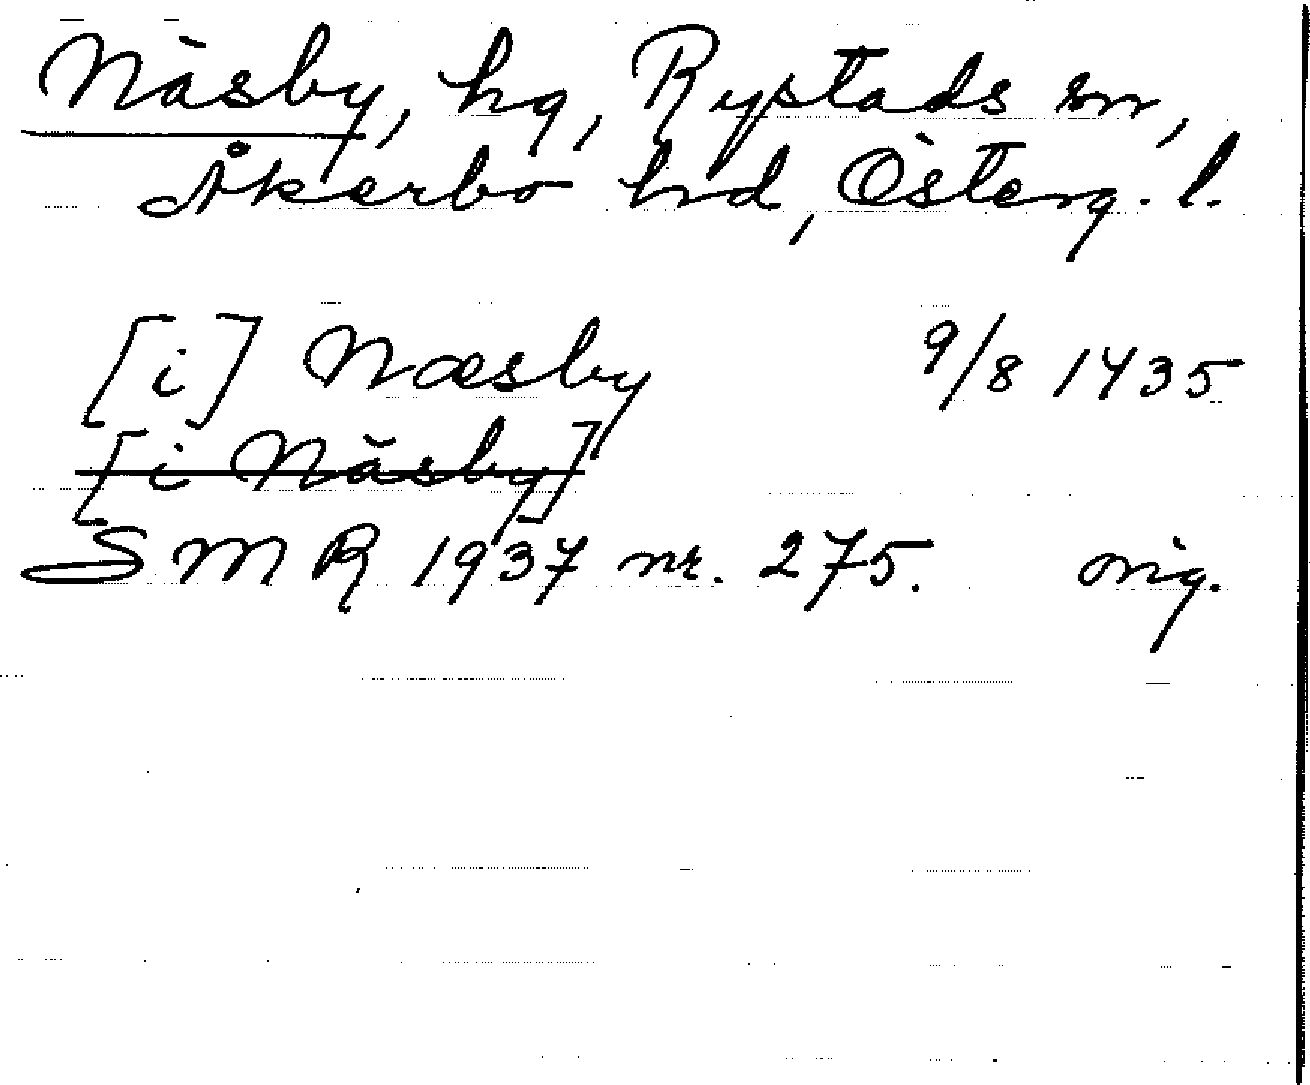 Näsby, hg, Rystads sn,
Åkerbo hd, Österg. l.
[i] Næsby 9/8 1435
[i Näsby]
SMR 1937 nr. 275. orig.